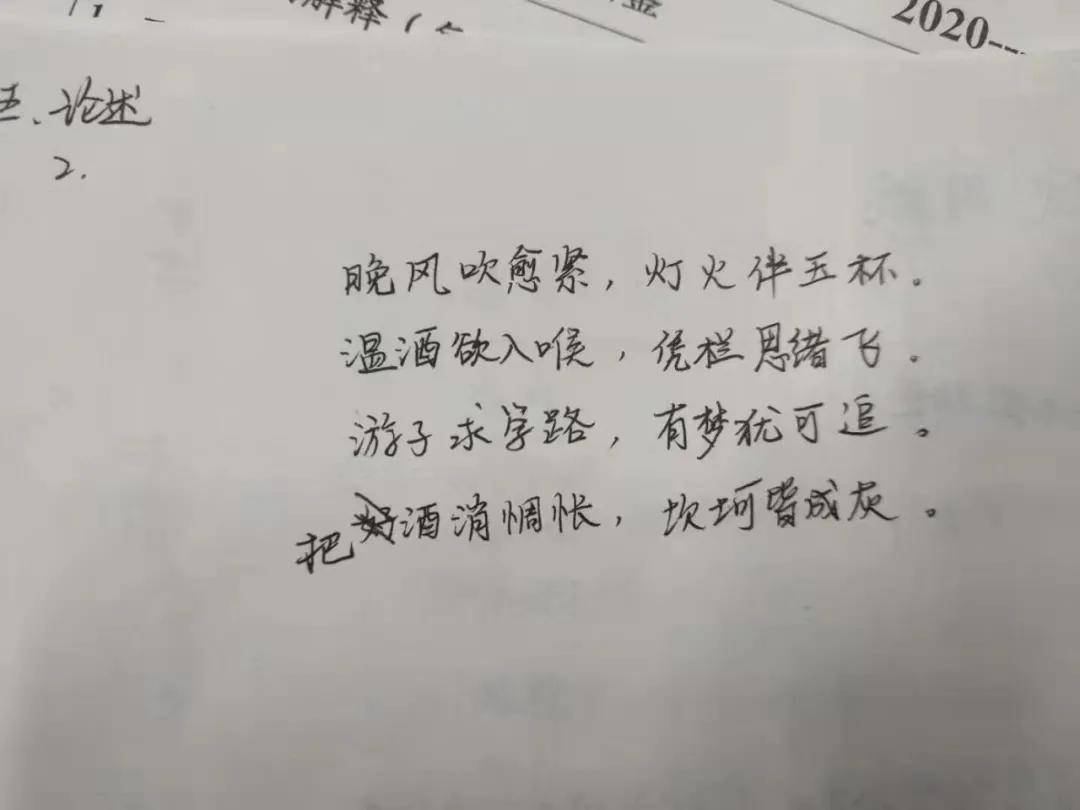 解释(
2020---
五、论述
2.
晚风吹愈紧，灯火伴玉杯。
温酒欲入喉，凭栏思绪飞。
游子求学路，有梦犹可追。
把酒消惆怅，坎坷皆成灰。